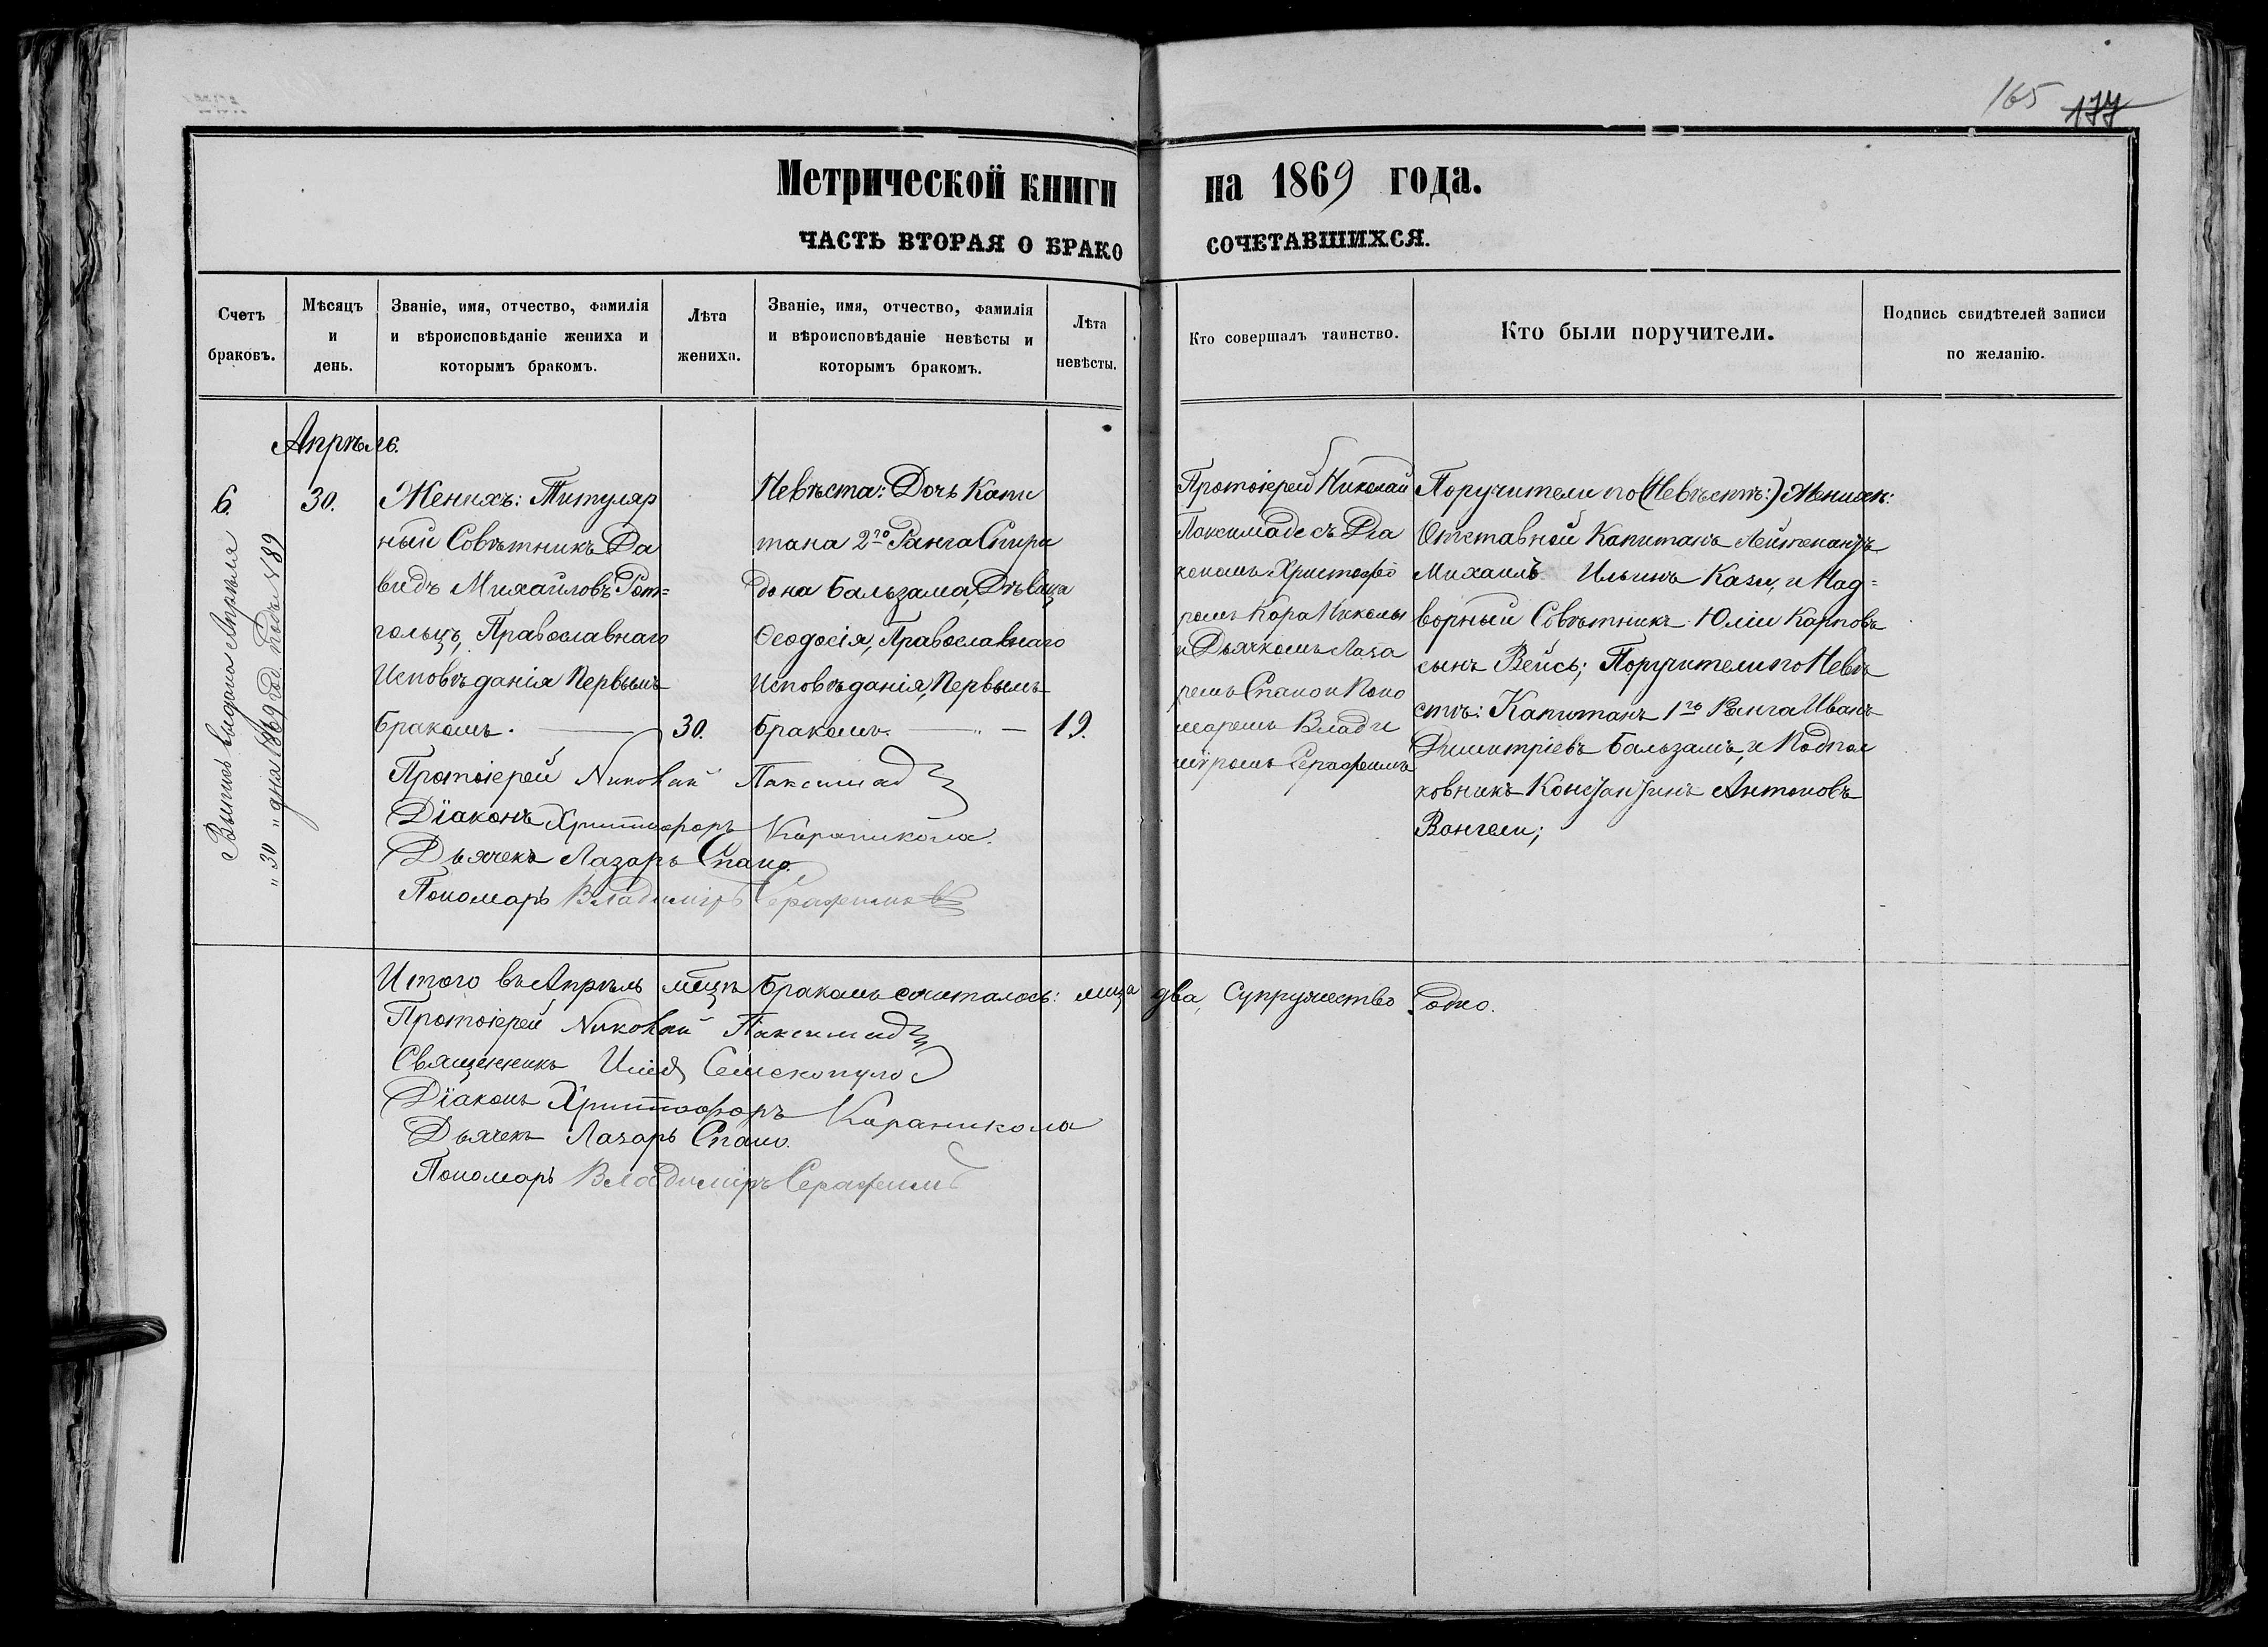 165 177
Метрической книги на 1869 года.
ЧАСТЬ ВТОРАЯ О БРАКО СОЧЕТАВШИХСЯ.
Счетъ браковъ.
Мѣсяцъ и день.
Званіе, имя, отчество, фамилія
и вѣроисповѣданіе жениха и
которымъ бракомъ.
Лѣта жениха.
Званіе, имя, отчество, фамилія
и вѣроисповѣданіе невѣсты и
которымъ бракомъ.
Лѣта невѣсты.
Кто совершалъ таинство.
Кто были поручители.
Подпись свидѣтелей записи
по желанію.
Апрѣль.
6.
30.
Выпись выдана Апрѣля
„ 30 „ дня 1869 год. подъ № 89
Женихъ: Титуляр
ный Совѣтникъ Да
видъ Михаиловъ Рот=
гольцъ, Православнаго
Исповѣданія Первымъ
бракомъ. 30.
Невѣста: Дочь Капи
тана 2го Ранга Спири
дона Бальзама, Дѣвица
Ѳеодосія, Православнаго
Исповѣданія, Первымъ
бракомъ. 19.
Протоіерей Николай Паксимад
Діаконъ Христофоръ Караникола.
Дьячекъ Лазарь Спано.
Пономарь Владиміръ Серафимовъ
Протоіерей Николай
Паксимаде съ Діа
кономъ Христофо
ромъ Кара Николы
и Дьячкомъ Лаза
ремъ Спано и Поно
маремъ Влади
міромъ Серафимъ
Поручители по (Невѣстѣ:) Жених:
Отставной Капитанъ Лейтенантъ
Михаилъ Ильинъ Кази, и Над=
ворный Совѣтникъ Юлій Карповъ
сынъ Вейсъ; Поручители по Невѣ
стѣ: Капитанъ 1го Ранга Иванъ
Димитріевъ Бальзамъ, и Подпол
ковникъ Константинъ Антоновъ
Вангели;
Итого въ Апрѣль мѣцѣ бракомъ считалось: лица два, Супружество одно.
Протоіерей Николай Паксимад
Священникъ Илія Семекопуло
Діаконъ Христофоръ Караникола
Дьячекъ Лазарь Спано.
Пономарь Владиміръ Серафимъ